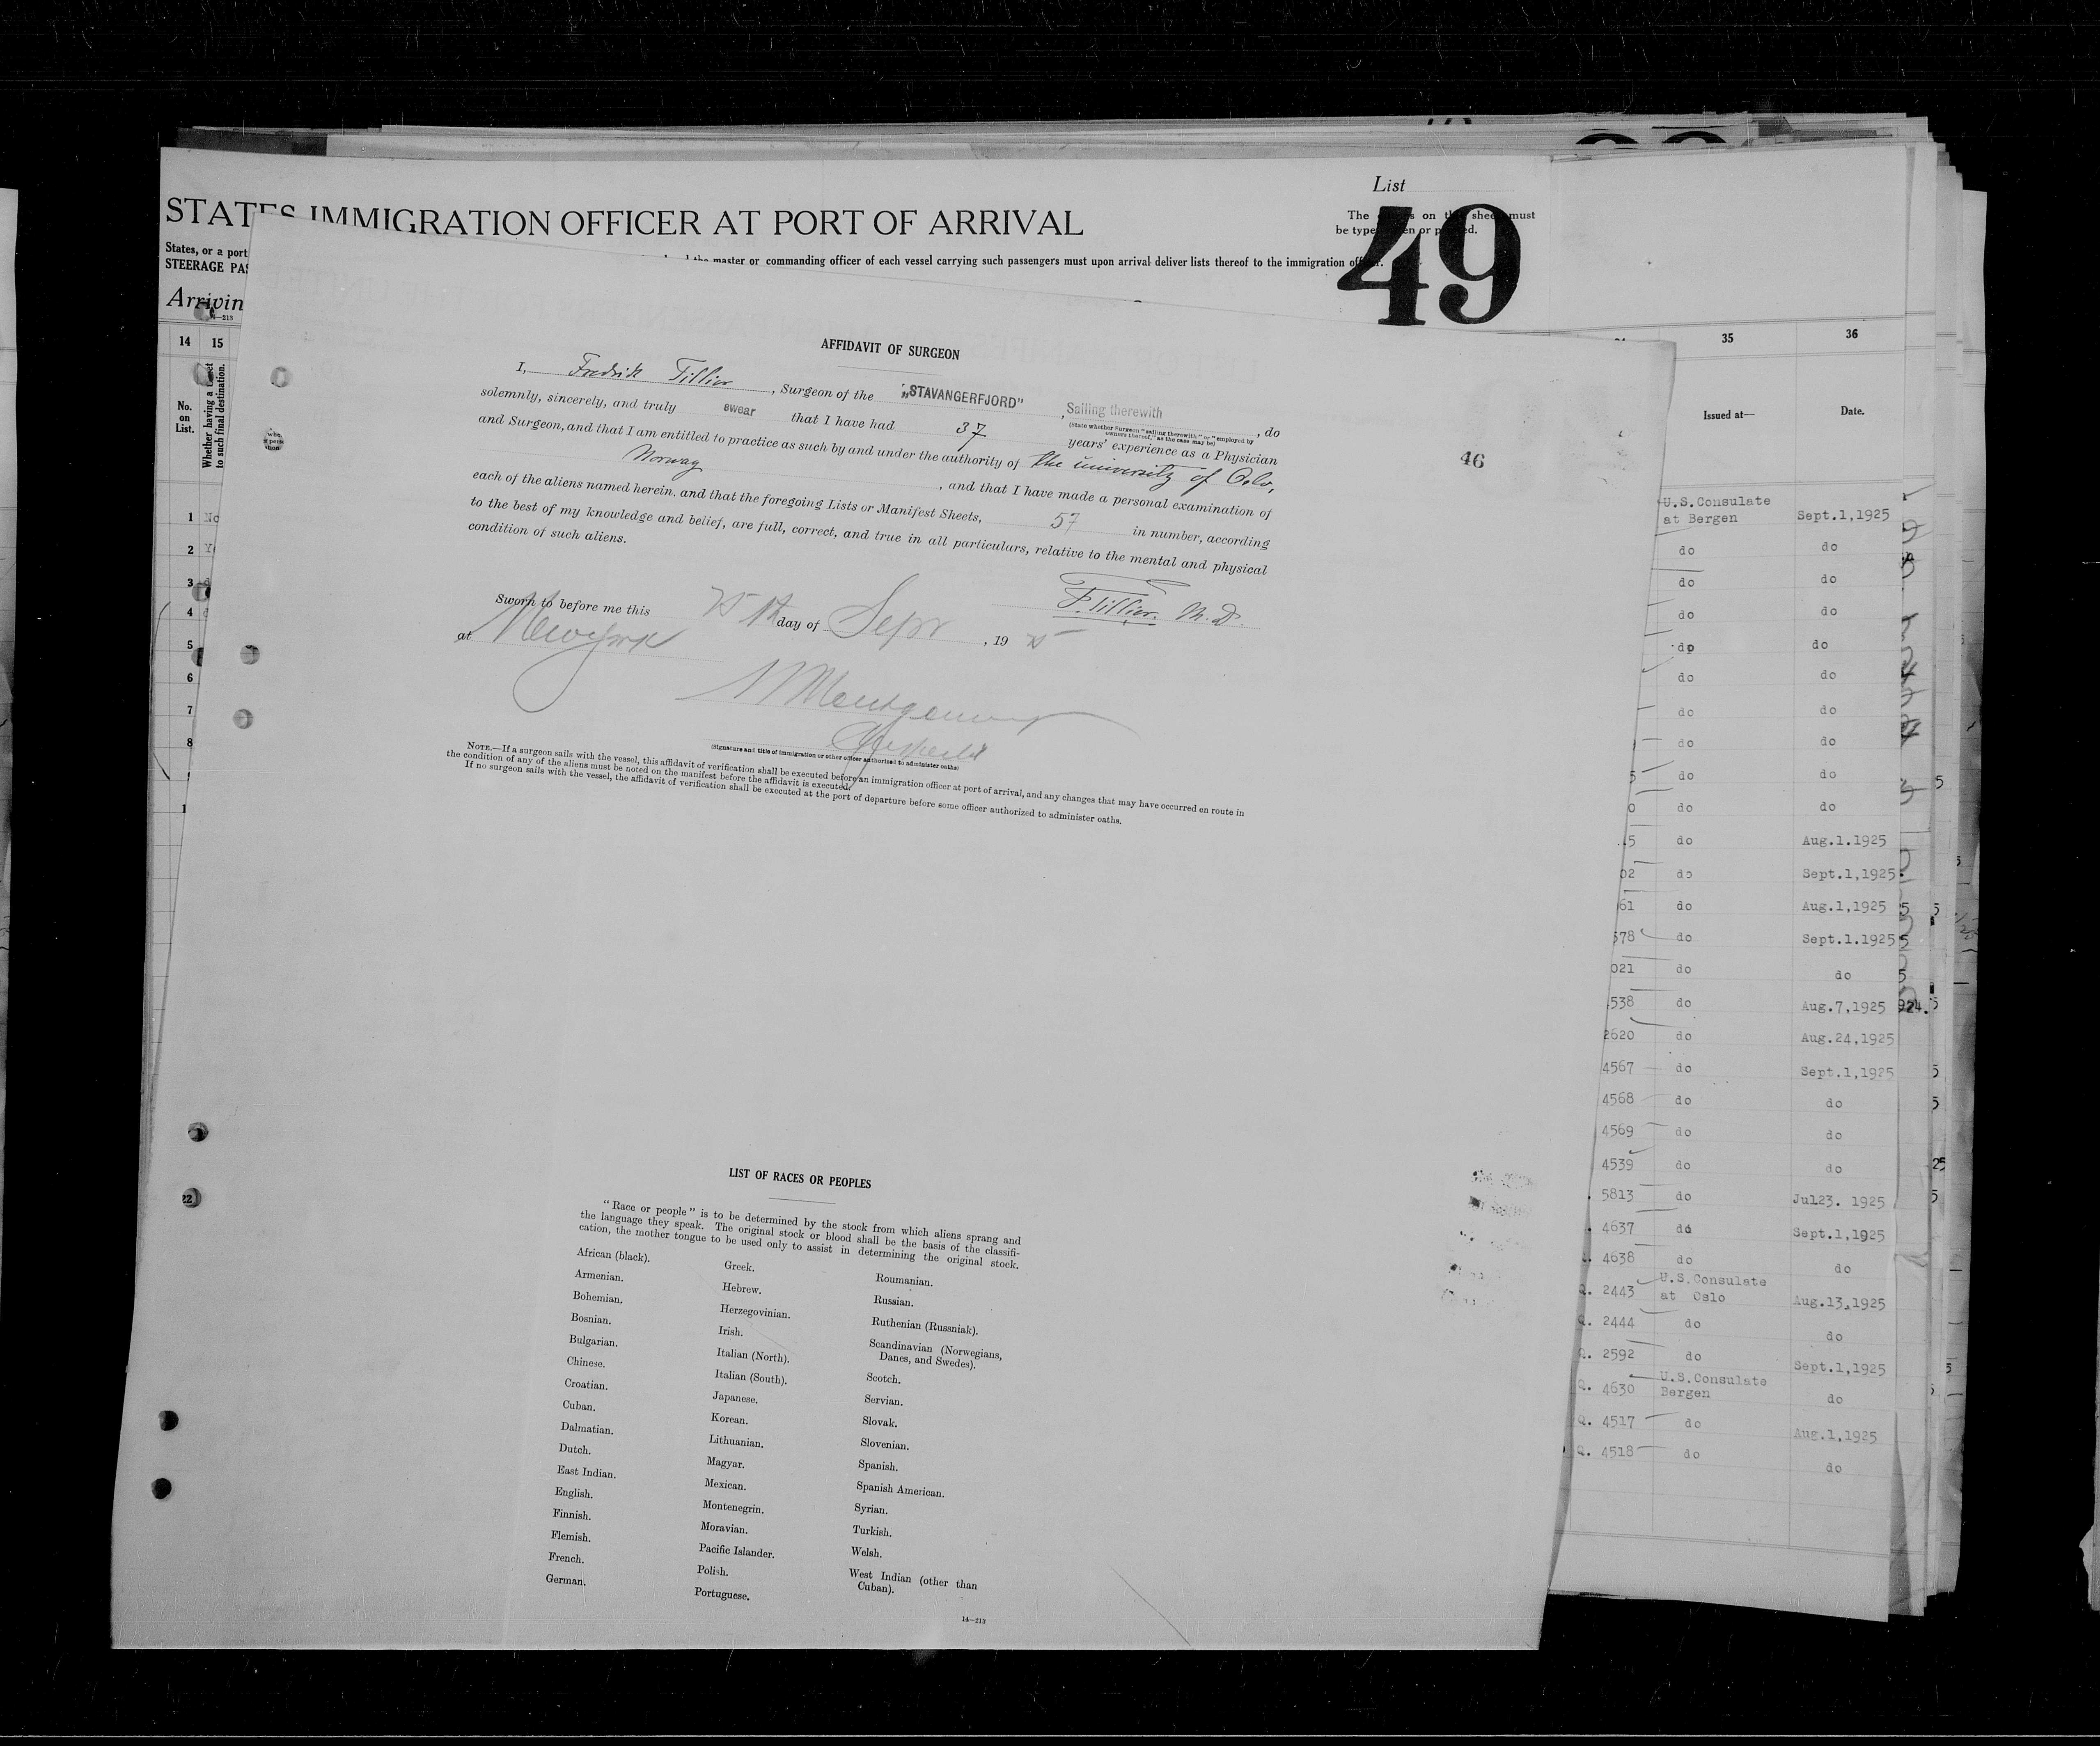 List
STATES IMMIGRATION OFFICER AT PORT OF ARRIVAL
The on this sheet must
be typewritten or printed.
49
States, or a port
STEERAGE PAS
the master or commanding officer of each vessel carrying such passengers must upon arrival deliver lists thereof to the immigration officer.
Arrivin
14—213
14 15
No.
on
List.
Whether having a ticket
to such final destination.
1 No
2 Y
3 d
4 d
5
6
7
8
1
22
AFFIDAVIT OF SURGEON
I, Fredrik Tillier, Surgeon of the „STAVANGERFJORD", Sailing therewith, do
(State whether Surgeon "sailing therewith" or "employed by
owners thereof," as the case may be)
solemnly, sincerely, and truly swear that I have had 37 years' experience as a Physician
and Surgeon, and that I am entitled to practice as such by and under the authority of the university of Oslo,
Norway, and that I have made a personal examination of
each of the aliens named herein, and that the foregoing Lists or Manifest Sheets, 57 in number, according
to the best of my knowledge and belief, are full, correct, and true in all particulars, relative to the mental and physical
condition of such aliens.
46
F. Tillier. M. D.
Sworn to before me this 25 th day of Sept, 19 25
at New York
Montgomery
(Signature and title of immigration or other officer authorized to administer oaths)
NOTE.—If a surgeon sails with the vessel, this affidavit of verification shall be executed before an immigration officer at port of arrival, and any changes that may have occurred en route in
the condition of any of the aliens must be noted on the manifest before the affidavit is executed.
If no surgeon sails with the vessel, the affidavit of verification shall be executed at the port of departure before some officer authorized to administer oaths.
LIST OF RACES OR PEOPLES
"Race or people" is to be determined by the stock from which aliens sprang and
the language they speak. The original stock or blood shall be the basis of the classifi-
cation, the mother tongue to be used only to assist in determining the original stock.
African (black).
Armenian.
Bohemian.
Bosnian.
Bulgarian.
Chinese.
Croatian.
Cuban.
Dalmatian.
Dutch.
East Indian.
English.
Finnish.
Flemish.
French.
German.
Greek.
Hebrew.
Herzegovinian.
Irish.
Italian (North).
Italian (South).
Japanese.
Korean.
Lithuanian.
Magyar.
Mexican.
Montenegrin.
Moravian.
Pacific Islander.
Polish.
Portuguese.
Roumanian.
Russian.
Ruthenian (Russniak).
Scandinavian (Norwegians,
Danes, and Swedes).
Scotch.
Servian.
Slovak.
Slovenian.
Spanish.
Spanish American.
Syrian.
Turkish.
Welsh.
West Indian (other than
Cuban).
14—213
35 36
Issued at— Date.
U.S.Consulate
at Bergen Sept.1,1925
do do
do do
do do
do do
do do
do do
do do
5 do do
0 do do
15 do Aug.1.1925
02 do Sept.1,1925
61 do Aug.1,1925
578 do Sept.1.1925
021 do do
538 do Aug.7,1925 924.
2620 do Aug.24,1925
4567 do Sept.1,1925
4568 do do
4569 do do
4539 do do
5813 do Jul23. 1925
4637 do Sept.1,1925
4638 do do
Q. 2443 U.S.Consulate
at Oslo Aug.13,1925
Q. 2444 do do
Q. 2592 do Sept.1,1925
Q. 4630 U.S.Consulate
Bergen do
Q. 4517 do Aug.1,1925
Q. 4518 do do